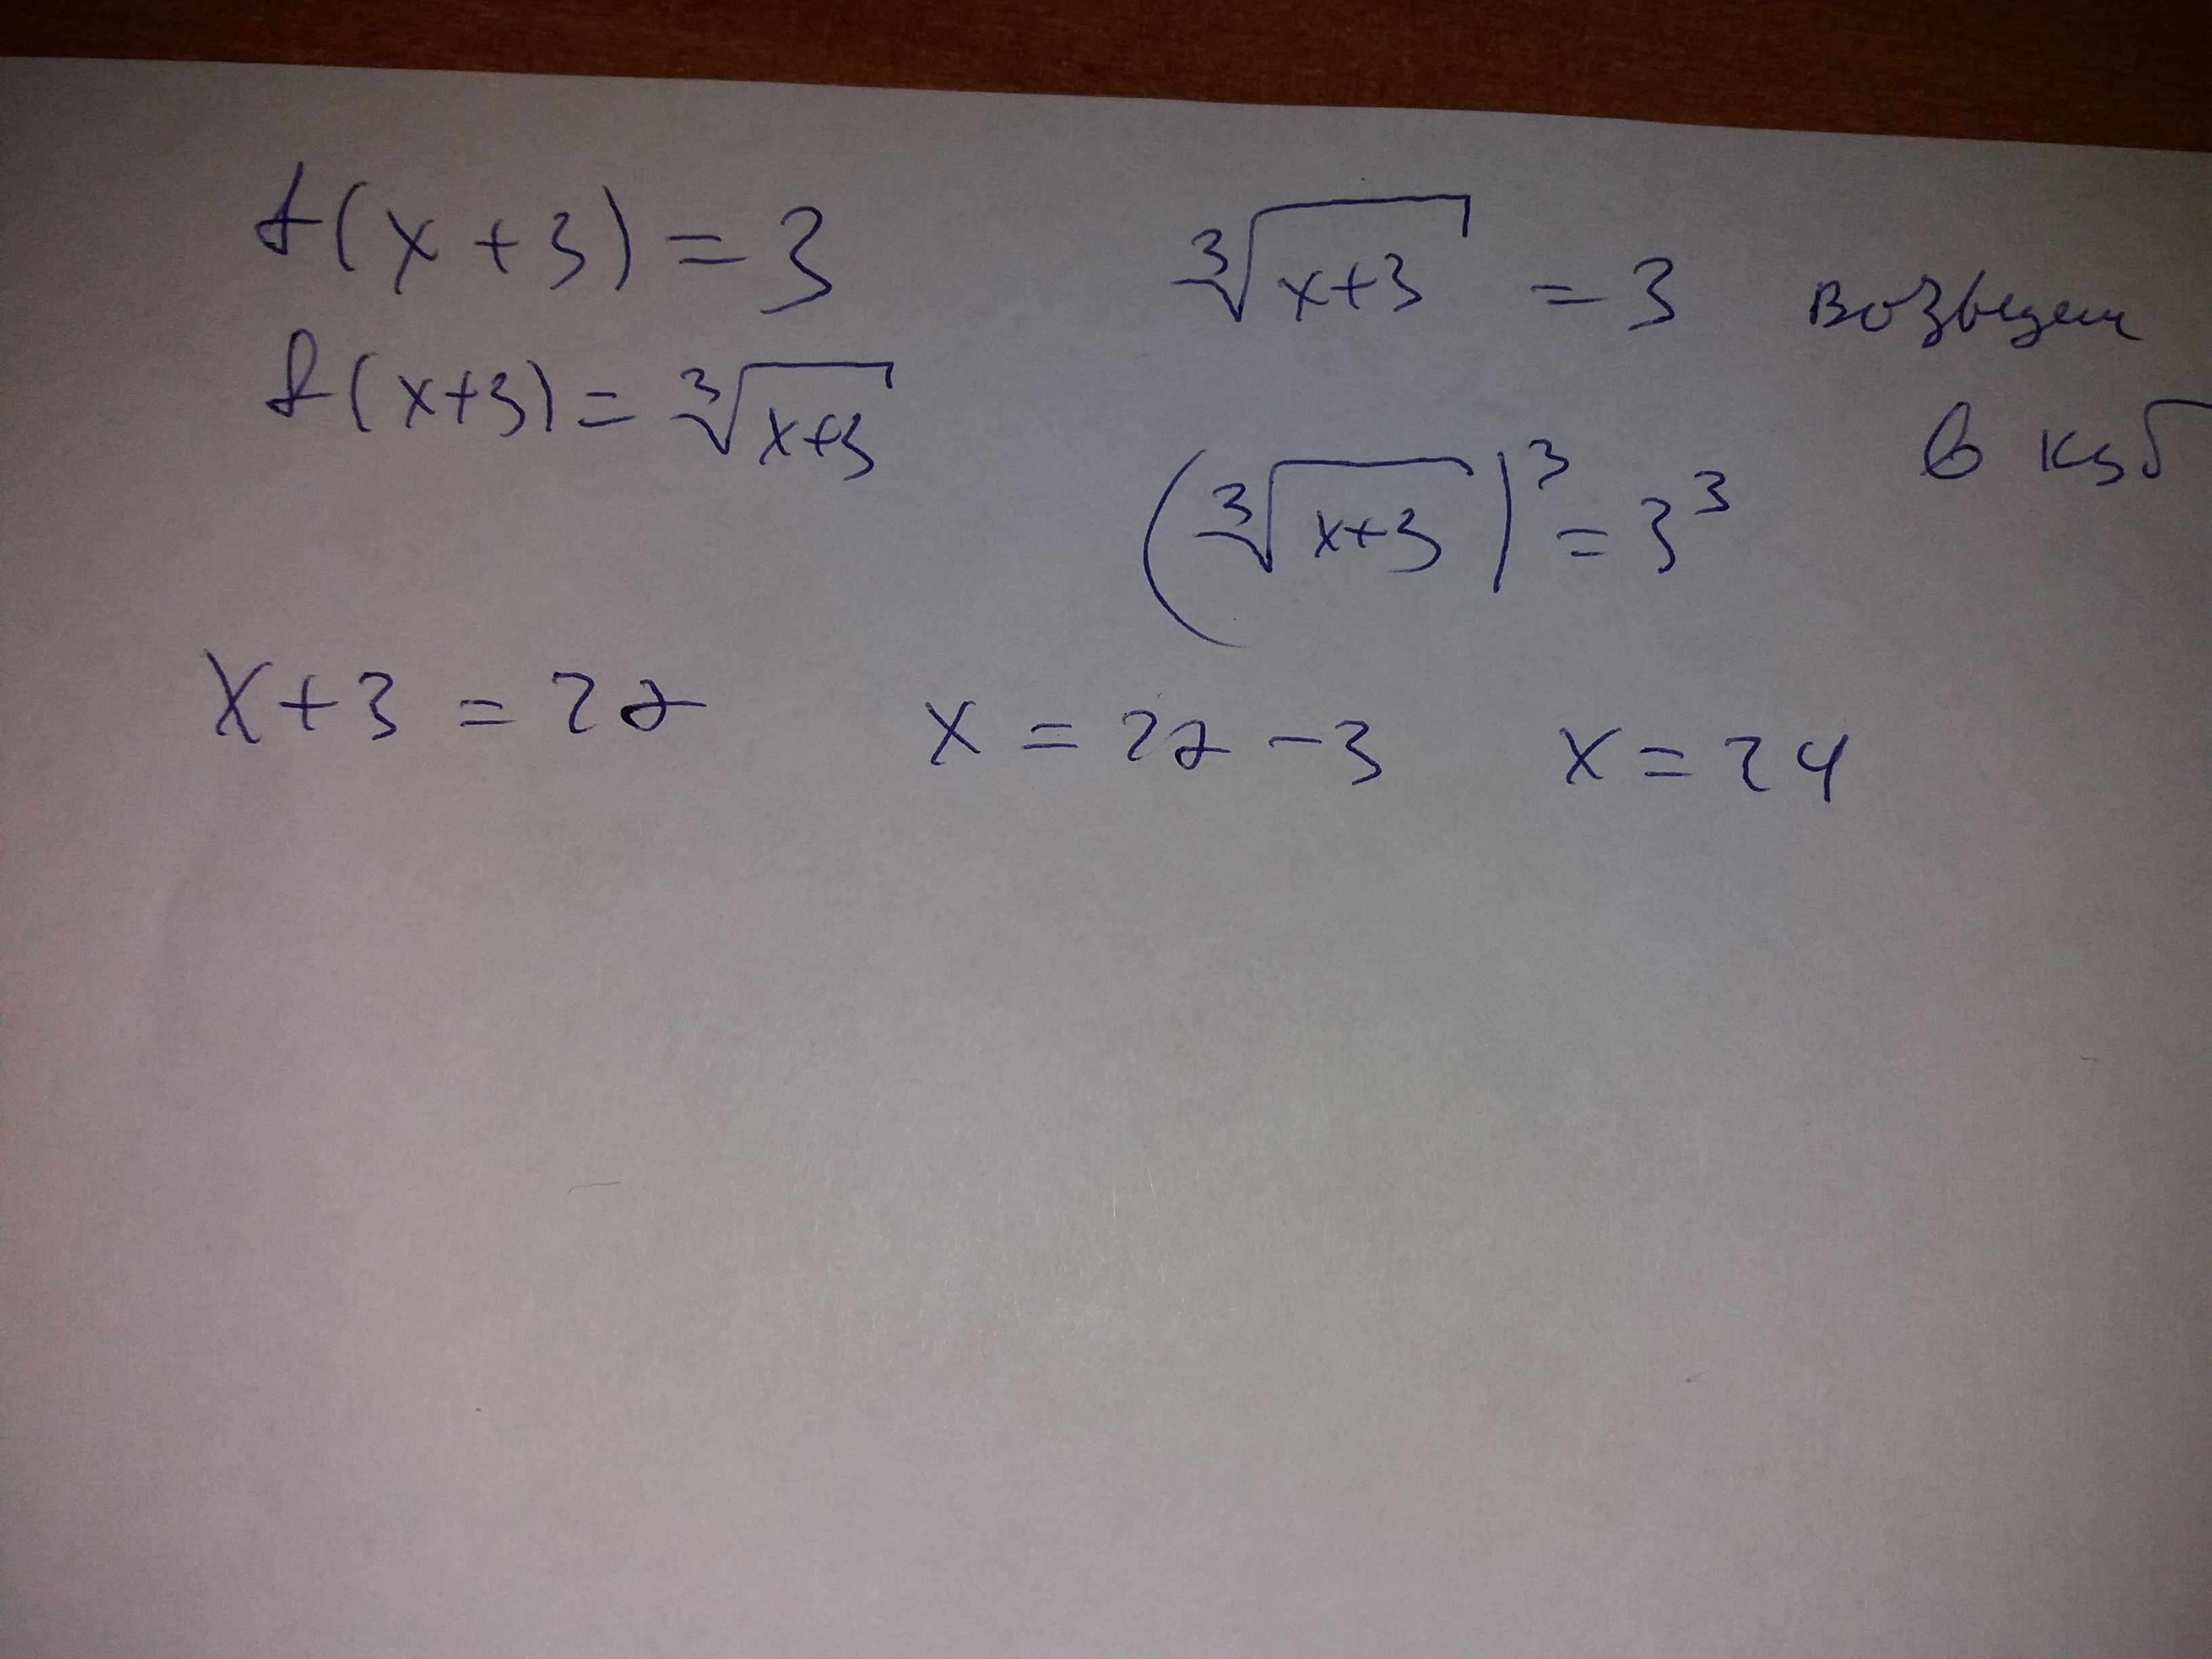 f(x+3)=3
f(x+3)=∛(x+3)
∛(x+3) = 3 возведем
в куб
(∛(x+3))³ = 3³
x+3 = 27 x = 27 - 3 x = 24